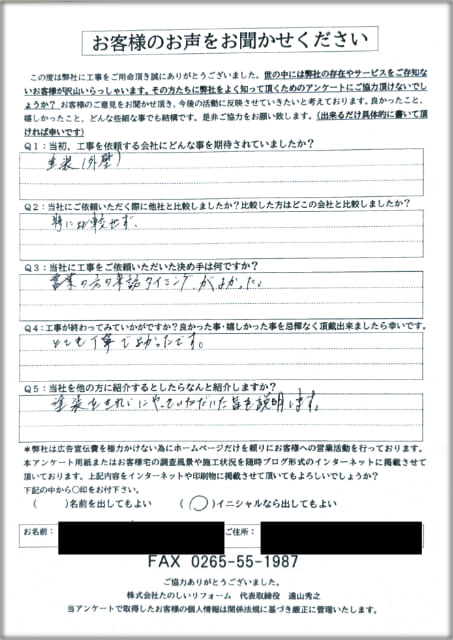 お客様のお声をお聞かせください
この度は弊社に工事をご用命頂き誠にありがとうございました。世の中には弊社の存在やサービスをご存知な
いお客様が沢山いらっしゃいます。その方たちに弊社をよく知って頂くためのアンケートにご協力頂けないでし
ょうか? お客様のご意見をお聞かせ頂き、今後の活動に反映させていきたいと考えております。良かったこと、
嬉しかったこと、どんな些細な事でも結構です。是非ご協力をお願い致します。(出来るだけ具体的に書いて頂
ければ幸いです)
Q1:当初、工事を依頼する会社にどんな事を期待されていましたか?
塗装(外壁)
Q2:当社にご依頼いただく際に他社と比較しましたか?比較した方はどこの会社と比較しましたか?
特に比較せず、
Q3:当社に工事をご依頼いただいた決め手は何ですか?
営業の方の電話タイミングがよかった。
Q4:工事が終わってみていかがですか?良かった事・嬉しかった事を忌憚なく頂戴出来ましたら幸いです。
とても丁寧でよかったです。
Q5:当社を他の方に紹介するとしたらなんと紹介しますか?
塗装をきれいにやっていただいた旨を説明します。
*弊社は広告宣伝費を極力かけない為にホームページだけを頼りにお客様への営業活動を行っております。
本アンケート用紙またはお客様宅の調査風景や施工状況を随時ブログ形式のインターネットに掲載させて
頂いております。上記内容をインターネットや印刷物に掲載させて頂いてもよろしいでしょうか?
下記の中から○印をお付下さい。
( )名前を出してもよい ( ○ )イニシャルなら出してもよい
お名前: ご住所:
FAX 0265-55-1987
ご協力ありがとうございました。
株式会社たのしいリフォーム 代表取締役 遠山秀之
当アンケートで取得したお客様の個人情報は関係法規に基づき厳正に管理いたします。